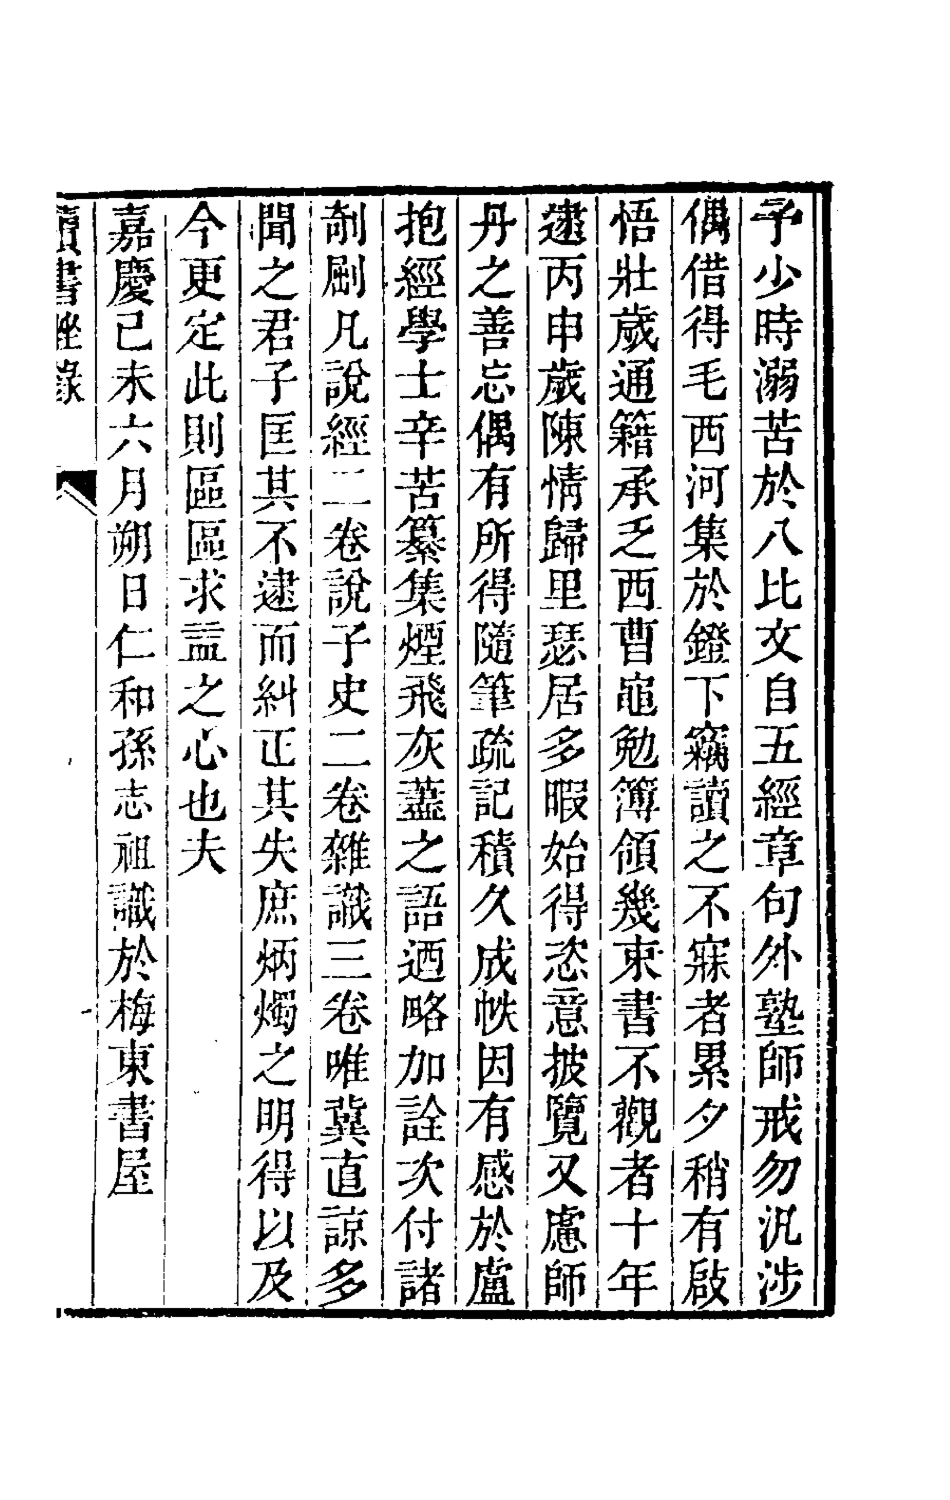 予少時溺苦於八比文自五經章句外塾師戒勿汎涉
偶借得毛西河集於鐙下竊讀之不寐者累夕稍有啟
悟壯歲通籍承乏西曹黽勉簿領幾束書不觀者十年
逮丙申歲陳情歸里瑟居多暇始得恣意披覽又慮師
丹之善忘偶有所得隨筆疏記積久成帙因有感於盧
抱經學士辛苦纂集煙飛灰蓋之語迺略加詮次付諸
剞劂凡說經二卷說子史二卷雜識三卷唯冀直諒多
聞之君子匡其不逮而糾正其失庶炳燭之明得以及
今更定此則區區求益之心也夫
嘉慶已未六月朔日仁和孫志祖識於梅東書屋
讀書脞錄